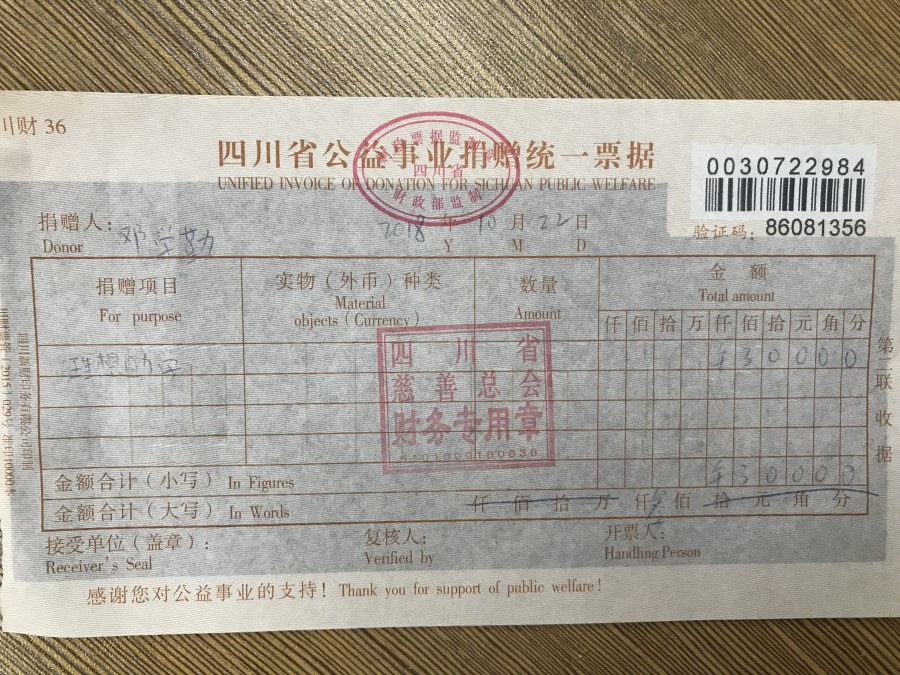 川财 36
四川省公益事业捐赠统一票据
UNIFIED INVOICE OF DONATION FOR SICHUAN PUBLIC WELFARE
财政票据监制章
四川省
财政部监制
0030722984
验证码: 86081356
捐赠人: 邓学勤 2018 年 10 月 22 日
Donor Y M D
捐赠项目 实物（外币）种类 数量 金额
For purpose Material objects (Currency) Amount Total amount
仟 佰 拾 万 仟 佰 拾 元 角 分
理想助学 ¥30000
四川省
慈善总会
财务专用章
金额合计（小写） In Figures ¥30000
金额合计（大写） In Words 仟 佰 拾 万 仟 佰 拾 元 角 分
接受单位（盖章）: 复核人: 开票人:
Receiver's Seal Verified by Handling Person
感谢您对公益事业的支持! Thank you for support of public welfare!
第二联 收据